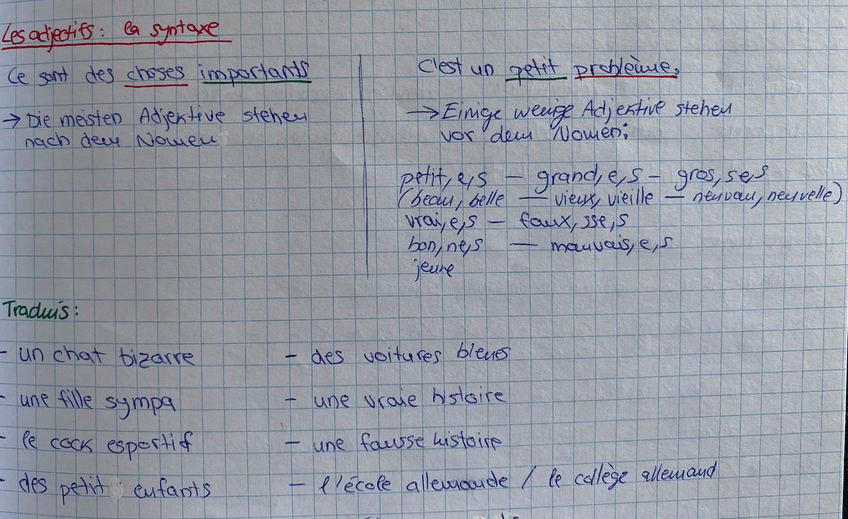 Les adjectifs: la syntaxe
Ce sont des choses importants
→ Die meisten Adjektive stehen
nach dem Nomen
C'est un petit problème.
→ Einige wenige Adjektive stehen
vor dem Nomen:
petit,e,s — grand,e,s — gros,se,s
(beau, belle — vieux, vieille — nouveau, nouvelle)
vrai,e,s — faux,sse,s
bon,ne,s — mauvais,e,s
jeune
Traduis:
- un chat bizarre
- une fille sympa
- le cock esportif
- des petit enfants
- des voitures bleues
- une vraie histoire
- une fausse histoire
- l'école allemande / le collège allemand